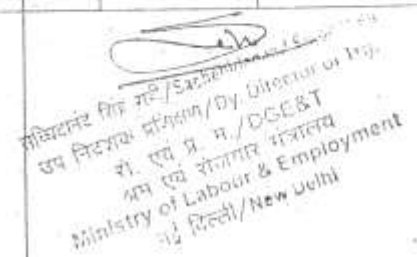 सच्चिदानंद शिव मणी/Sachchidanand S
उप निदेशक प्रशिक्षण/Dy. Director of Trg.
रो. एवं प्र. म./DGE&T
श्रम एवं रोजगार मंत्रालय
Ministry of Labour & Employment
नई दिल्ली/New Delhi